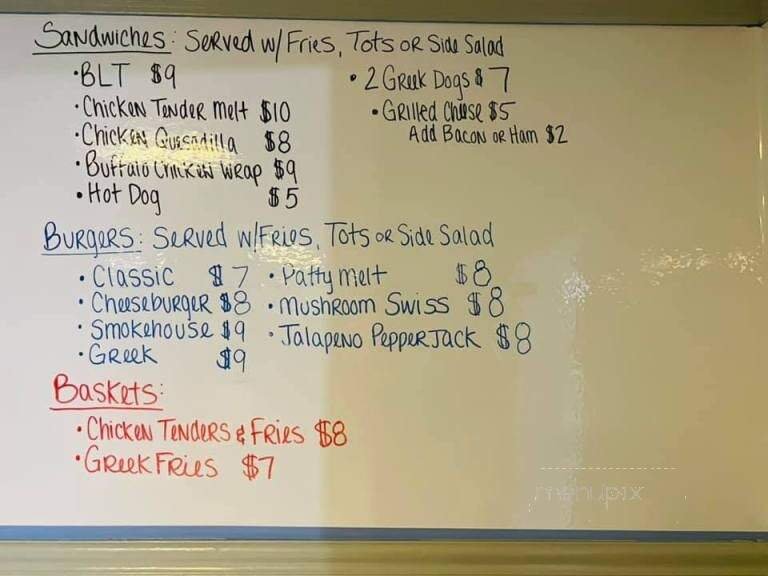 Sandwiches: Served w/ Fries, Tots or Side Salad
• BLT $9
• Chicken Tender Melt $10
• Chicken Quesadilla $8
• Buffalo Chicken Wrap $9
• Hot Dog $5
• 2 Greek Dogs $7
• Grilled Cheese $5
Add Bacon or Ham $2
Burgers: Served w/Fries, Tots or Side Salad
• Classic $7
• Cheeseburger $8
• Smokehouse $9
• Greek $9
• Patty melt $8
• Mushroom Swiss $8
• Jalapeno Pepper Jack $8
Baskets:
• Chicken Tenders & Fries $8
• Greek Fries $7
menupix